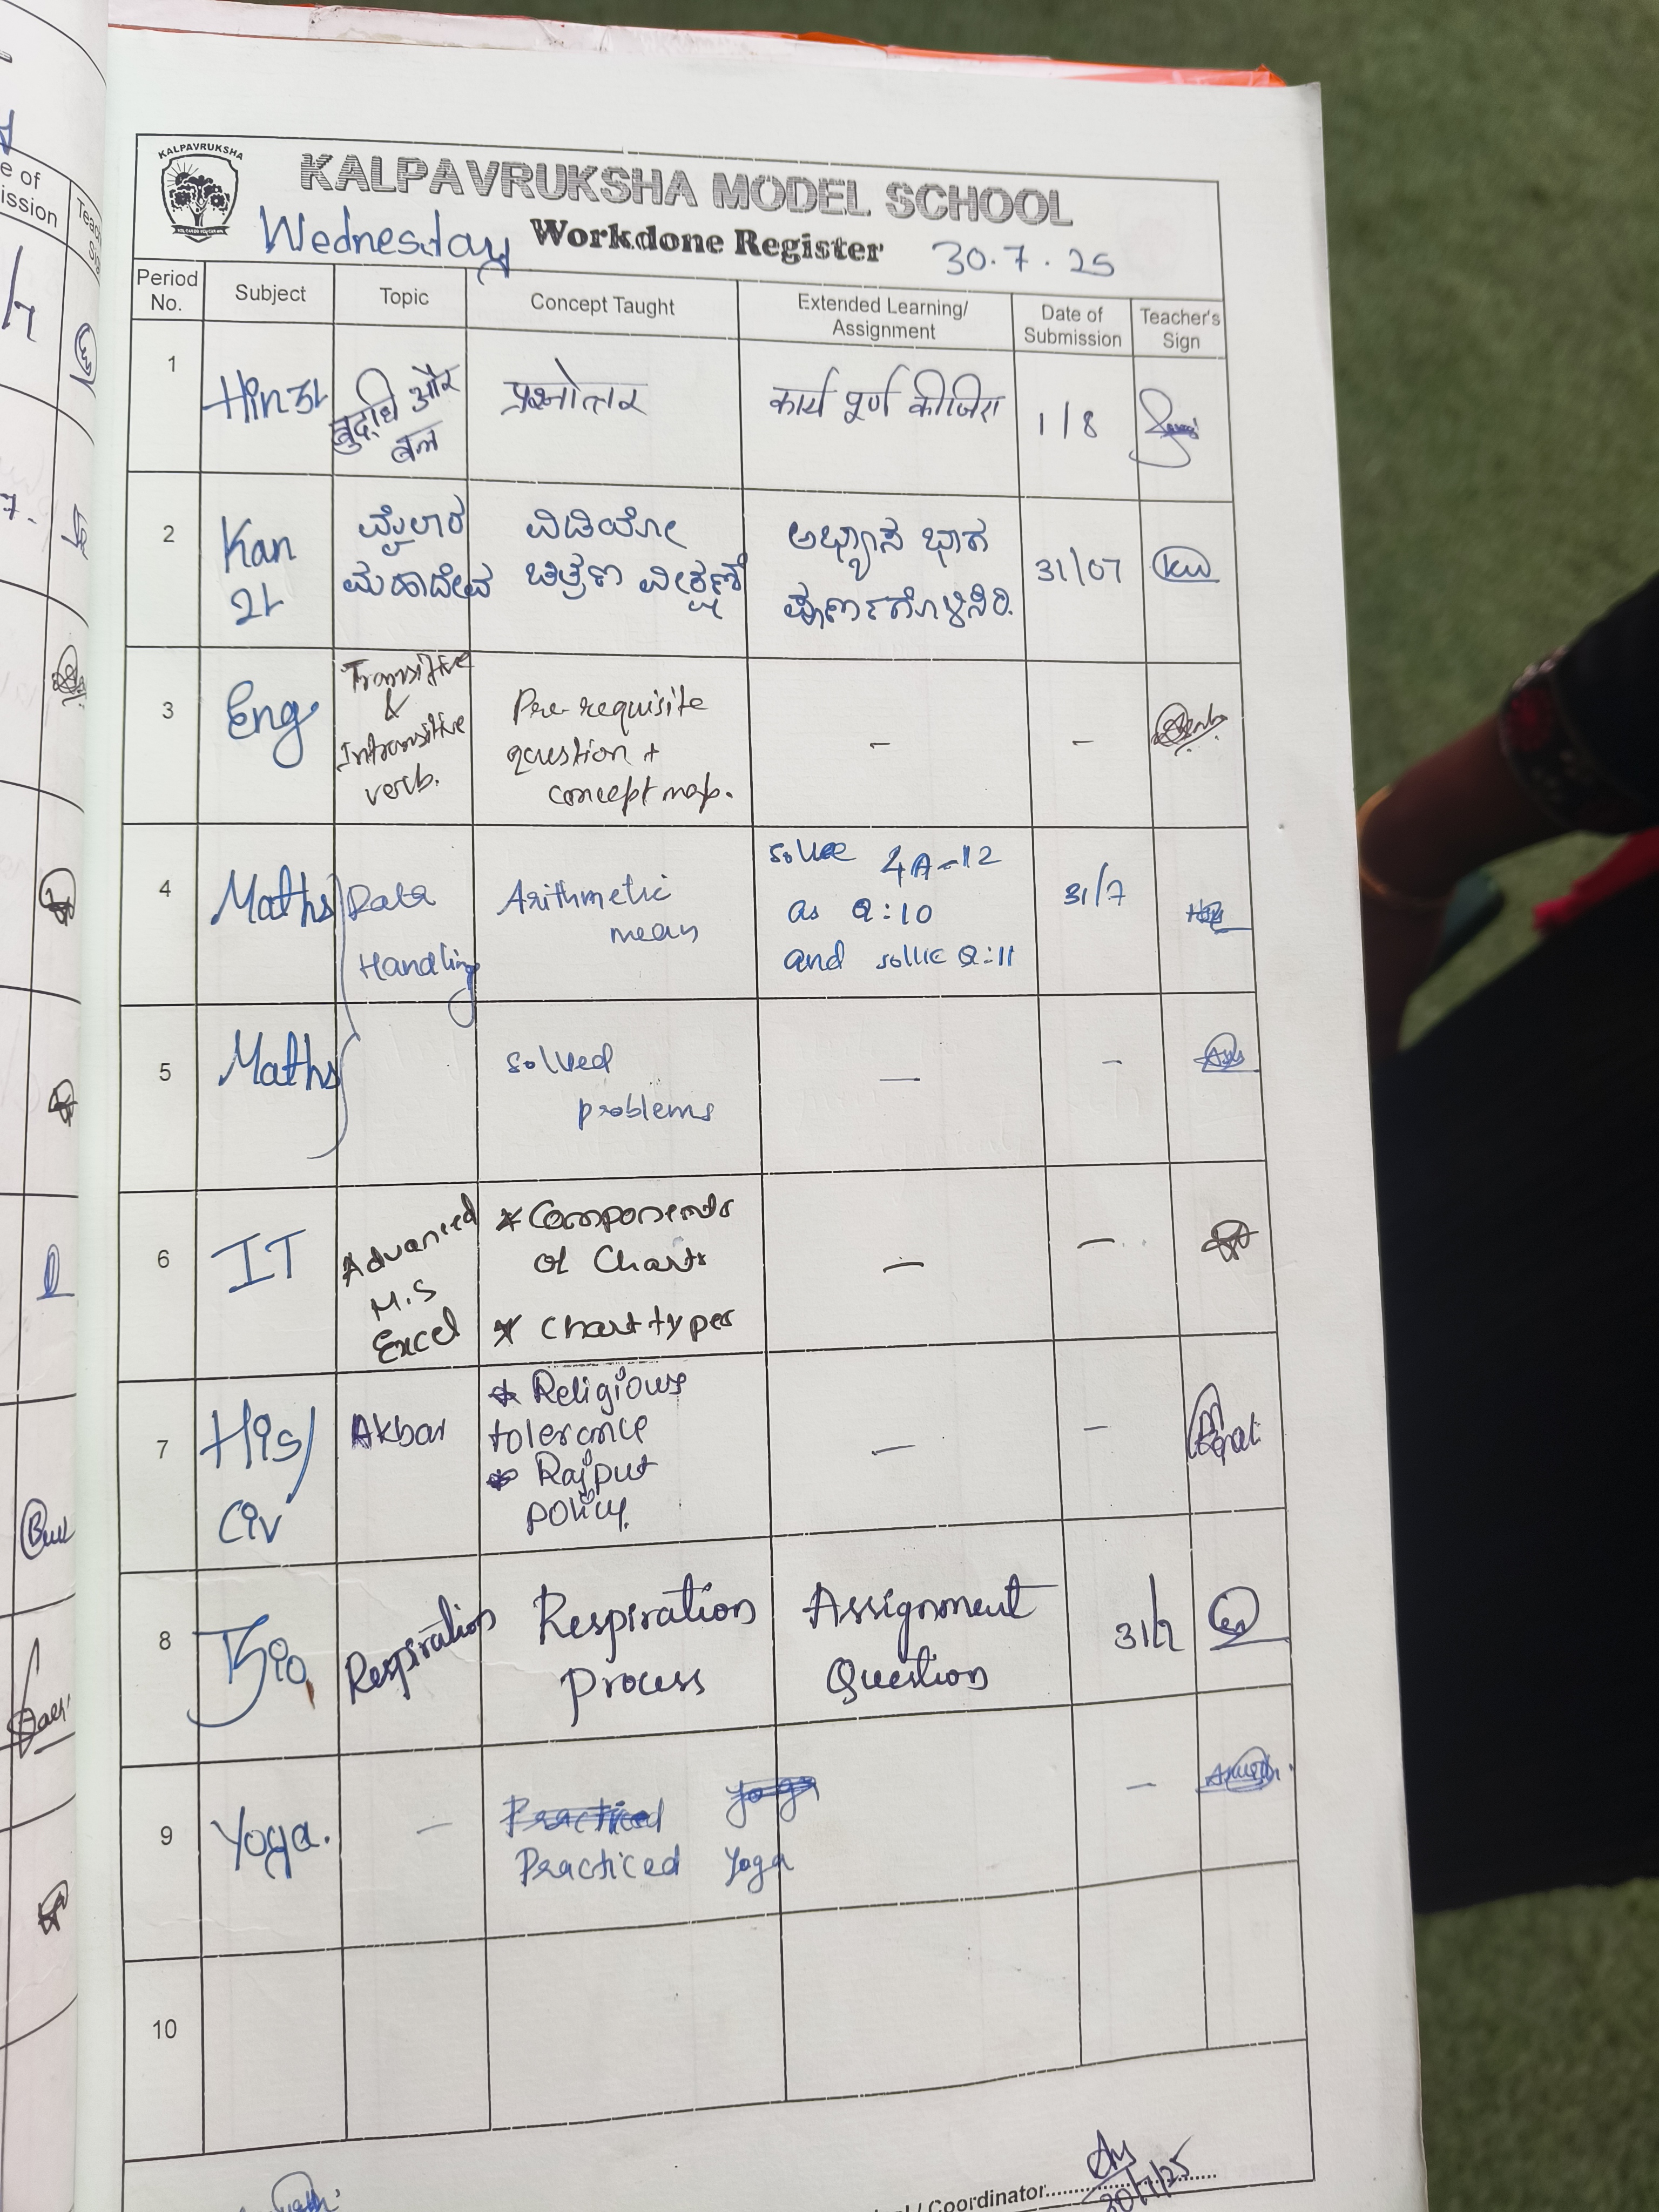 KALPAVRUKSHA
KALPAVRUKSHA MODEL SCHOOL
Wednesday Workdone Register 30.7.25
Period No. Subject Topic Concept Taught Extended Learning/ Assignment Date of Submission Teacher's Sign
1 Hin 3L बुद्धि और बल प्रश्नोत्तर कार्य पूर्ण कीजिए 1/8
2 Kan 2L ಮೈಲಾರ ಮಹಾದೇವ ವಿಡಿಯೋ ಚಿತ್ರಣ ವೀಕ್ಷಣೆ ಅಭ್ಯಾಸ ಭಾಗ ಪೂರ್ಣಗೊಳಿಸಿರಿ. 31/07
3 Eng Transitive & Intransitive verb. Pre-requisite question + concept map. - -
4 Maths Data Handling Arithmetic mean solve 4A-12 as Q:10 and solve Q:11 31/7
5 Maths solved problems - -
6 IT Advanced M.S Excel * Components of Charts * Chart types - -
7 His/ Civ Akbar * Religious tolerance * Rajput policy. - -
8 Bio Respiration Respiration Process Assignment Question 31/7
9 Yoga. - Practiced Yoga -
10
/ Coordinator
30/7/25